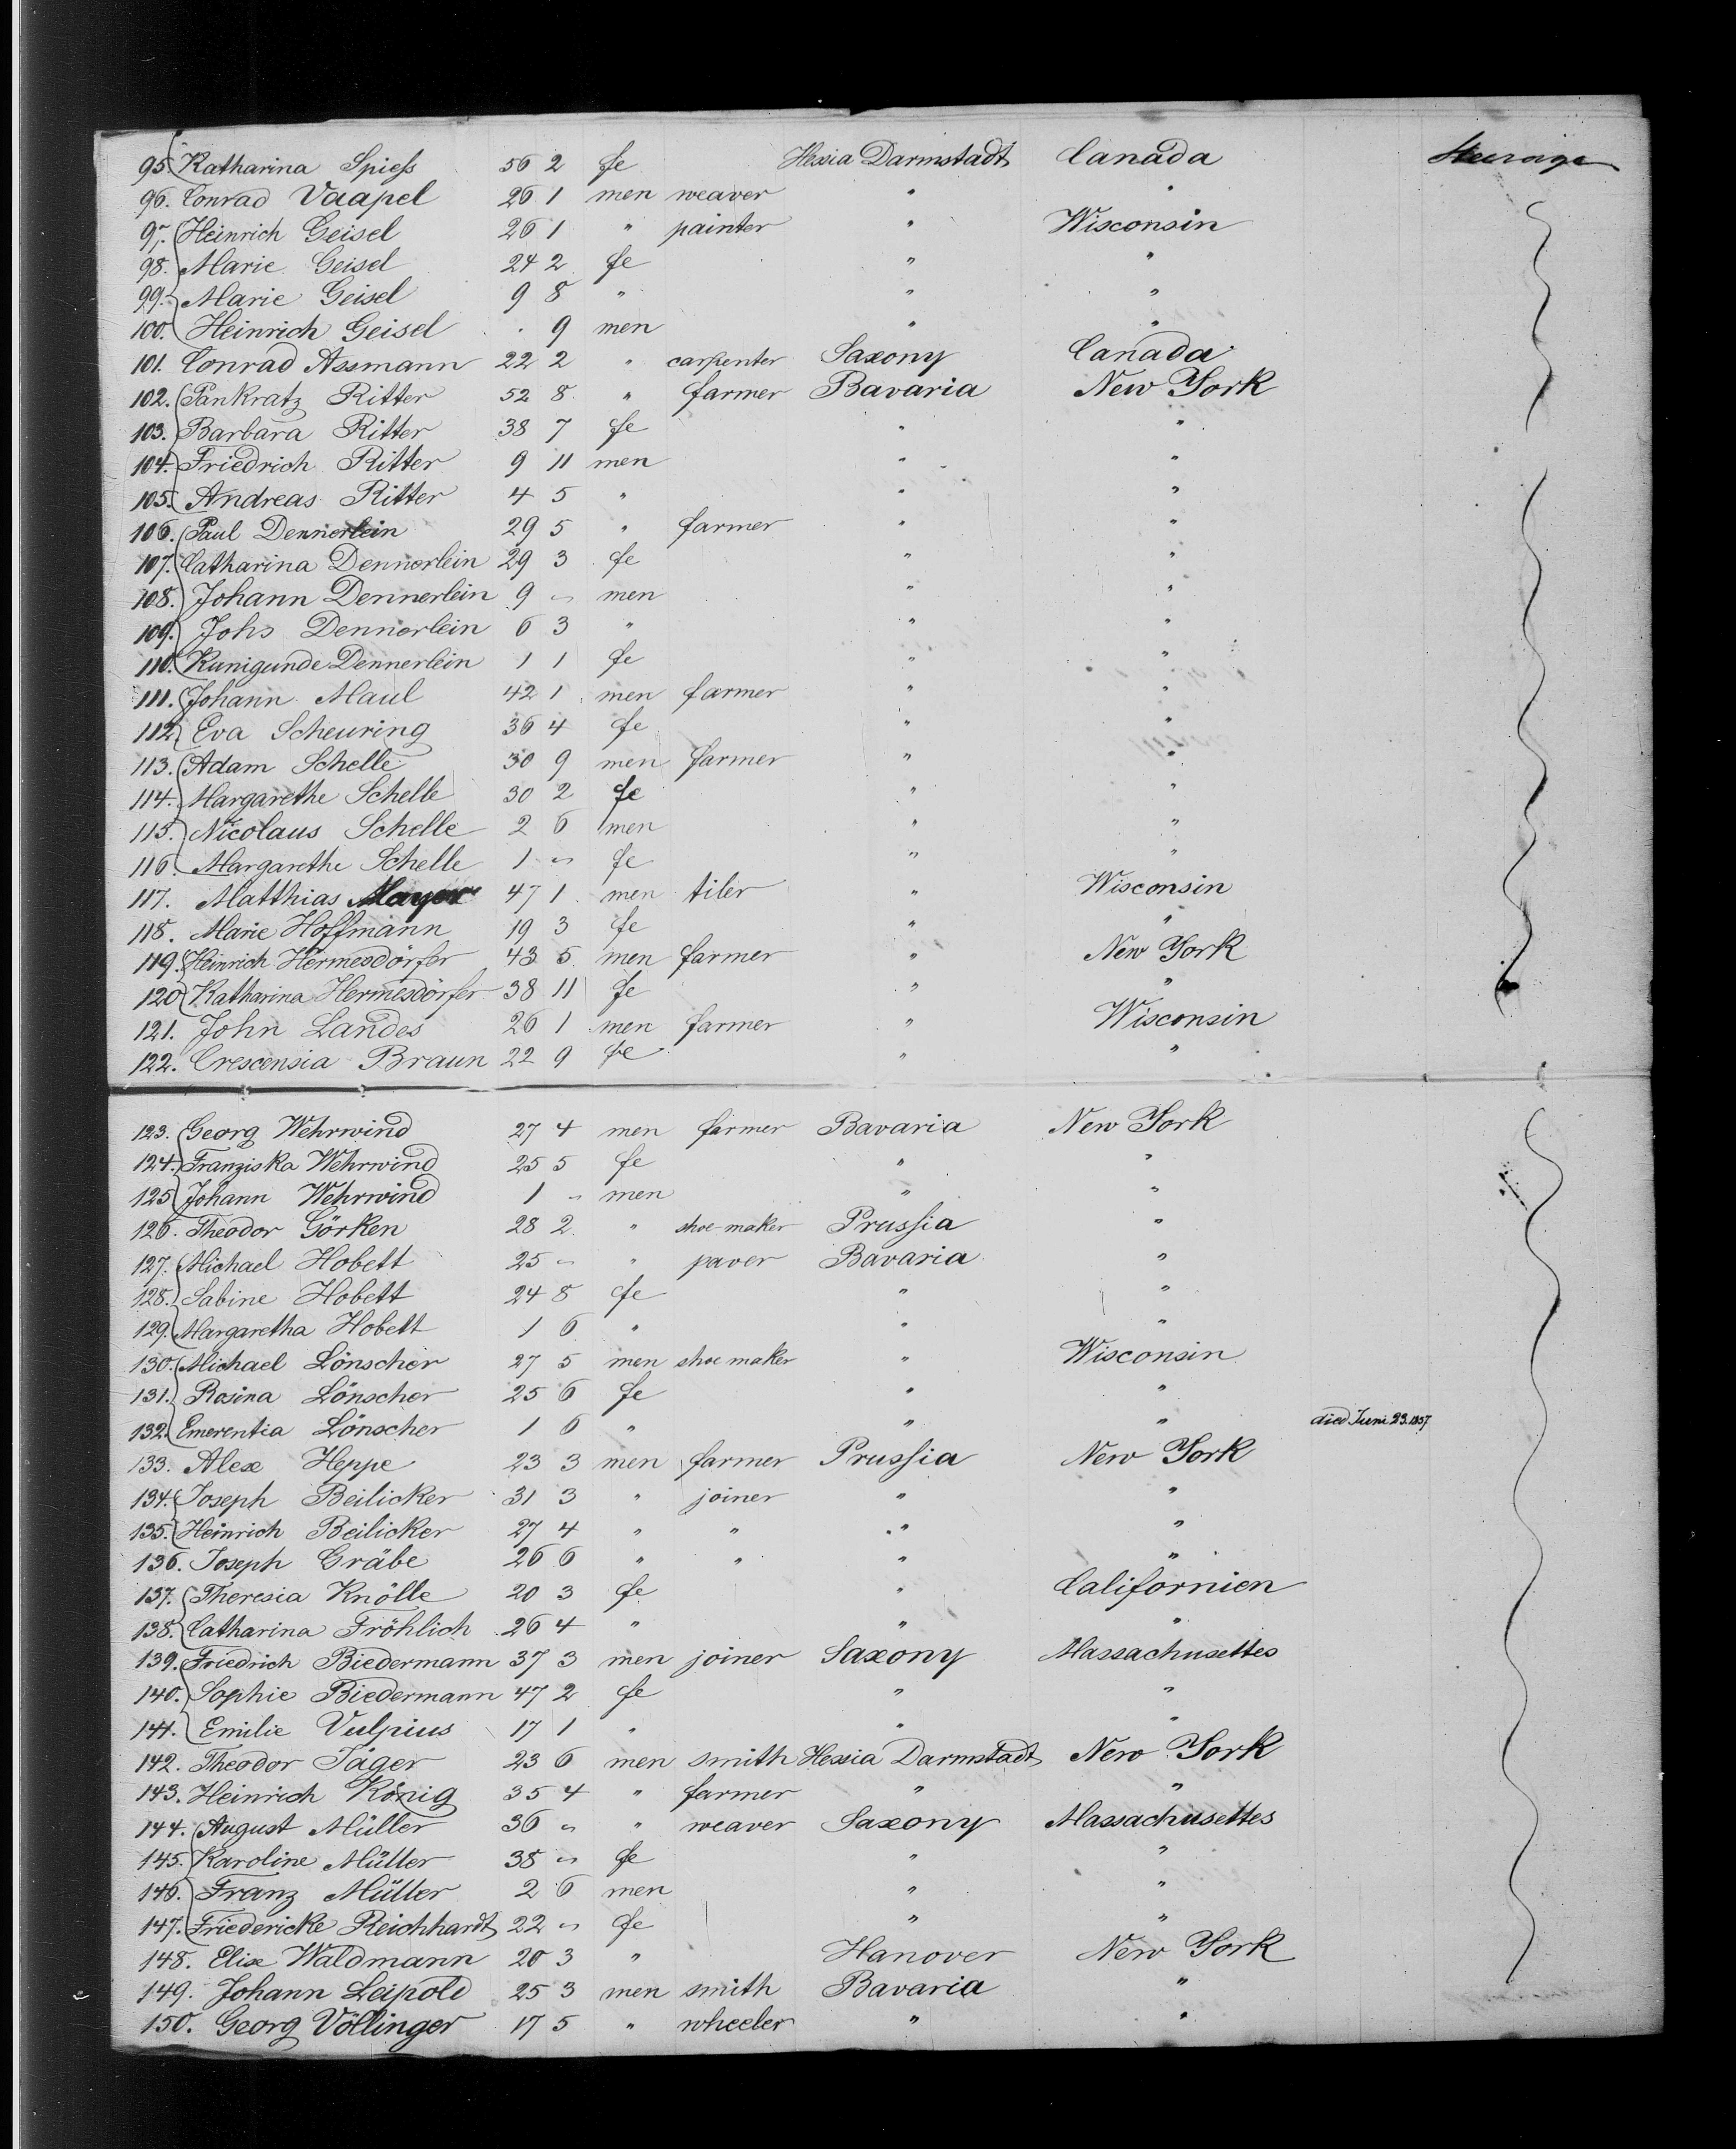 95. Katharina Spieſs 56 2 fe Hessia Darmstadt Canada Steerage
96. Conrad Vaapel 26 1 men weaver " "
97. Heinrich Geisel 26 1 " painter " Wisconsin
98. Marie Geisel 24 2 fe " "
99. Marie Geisel 9 8 " " "
100. Heinrich Geisel . 9 men " "
101. Conrad Assmann 22 2 " carpenter Saxony Canada
102. Pankratz Ritter 52 8 " farmer Bavaria New York
103. Barbara Ritter 38 7 fe " "
104. Friedrich Ritter 9 11 men " "
105. Andreas Ritter 4 5 " " "
106. Paul Dennerlein 29 5 " farmer " "
107. Catharina Dennerlein 29 3 fe " "
108. Johann Dennerlein 9 " men " "
109. Johs Dennerlein 6 3 " " "
110. Kunigunde Dennerlein 1 1 fe " "
111. Johann Maul 42 1 men farmer " "
112. Eva Scheuring 36 4 fe " "
113. Adam Schelle 30 9 men farmer " "
114. Margarethe Schelle 30 2 fe " "
115. Nicolaus Schelle 2 6 men " "
116. Margarethe Schelle 1 " fe " "
117. Matthias Mayer 47 1 men tiler " Wisconsin
118. Marie Hoffmann 19 3 fe " "
119. Heinrich Hermesdörfer 43 5 men farmer " New York
120. Katharina Hermesdörfer 38 11 fe " "
121. John Landes 26 1 men farmer " Wisconsin
122. Crescensia Braun 22 9 fe " "
123. Georg Wehrwind 27 4 men farmer Bavaria New York
124. Franziska Wehrwind 25 5 fe " "
125. Johann Wehrwind 1 " men " "
126. Theodor Görken 28 2 " shoe-maker Pruſsia "
127. Michael Hobett 25 " " paver Bavaria "
128. Sabine Hobett 24 8 fe " "
129. Margaretha Hobett 1 6 " " "
130. Michael Lönscher 27 5 men shoe maker " Wisconsin
131. Rosina Lönscher 25 6 fe " "
132. Emerentia Lönscher 1 6 " " " died Juni 23. 1857
133. Alex Heppe 23 3 men farmer Pruſsia New York
134. Joseph Beilicker 31 3 " joiner " "
135. Heinrich Beilicker 27 4 " " " "
136. Joseph Gräbe 26 6 " " " "
137. Theresia Knölle 20 3 fe " Californien
138. Catharina Fröhlich 26 4 " " "
139. Friedrich Biedermann 37 3 men joiner Saxony Massachusettes
140. Sophie Biedermann 47 2 fe " "
141. Emilie Vulpius 17 1 " " "
142. Theodor Jäger 23 6 men smith Hessia Darmstadt New York
143. Heinrich König 35 4 " farmer " "
144. August Müller 36 " " weaver Saxony Massachusettes
145. Karoline Müller 38 " fe " "
146. Franz Müller 2 6 men " "
147. Friedericke Reichhardt 22 " fe " "
148. Elise Waldmann 20 3 " Hanover New York
149. Johann Leipold 25 3 men smith Bavaria "
150. Georg Völlinger 17 5 " wheeler " "